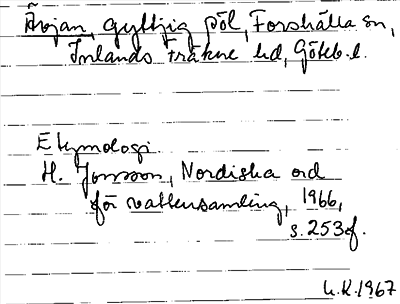 Ãvjan, gyttjig pöl, Forshälla sn,
Inlands Fräkne hd, Göteb. l.
Etymologi
H. Jonsson, Nordiska ord
för vattensamling, 1966,
s. 253 f.
U.K. 1967